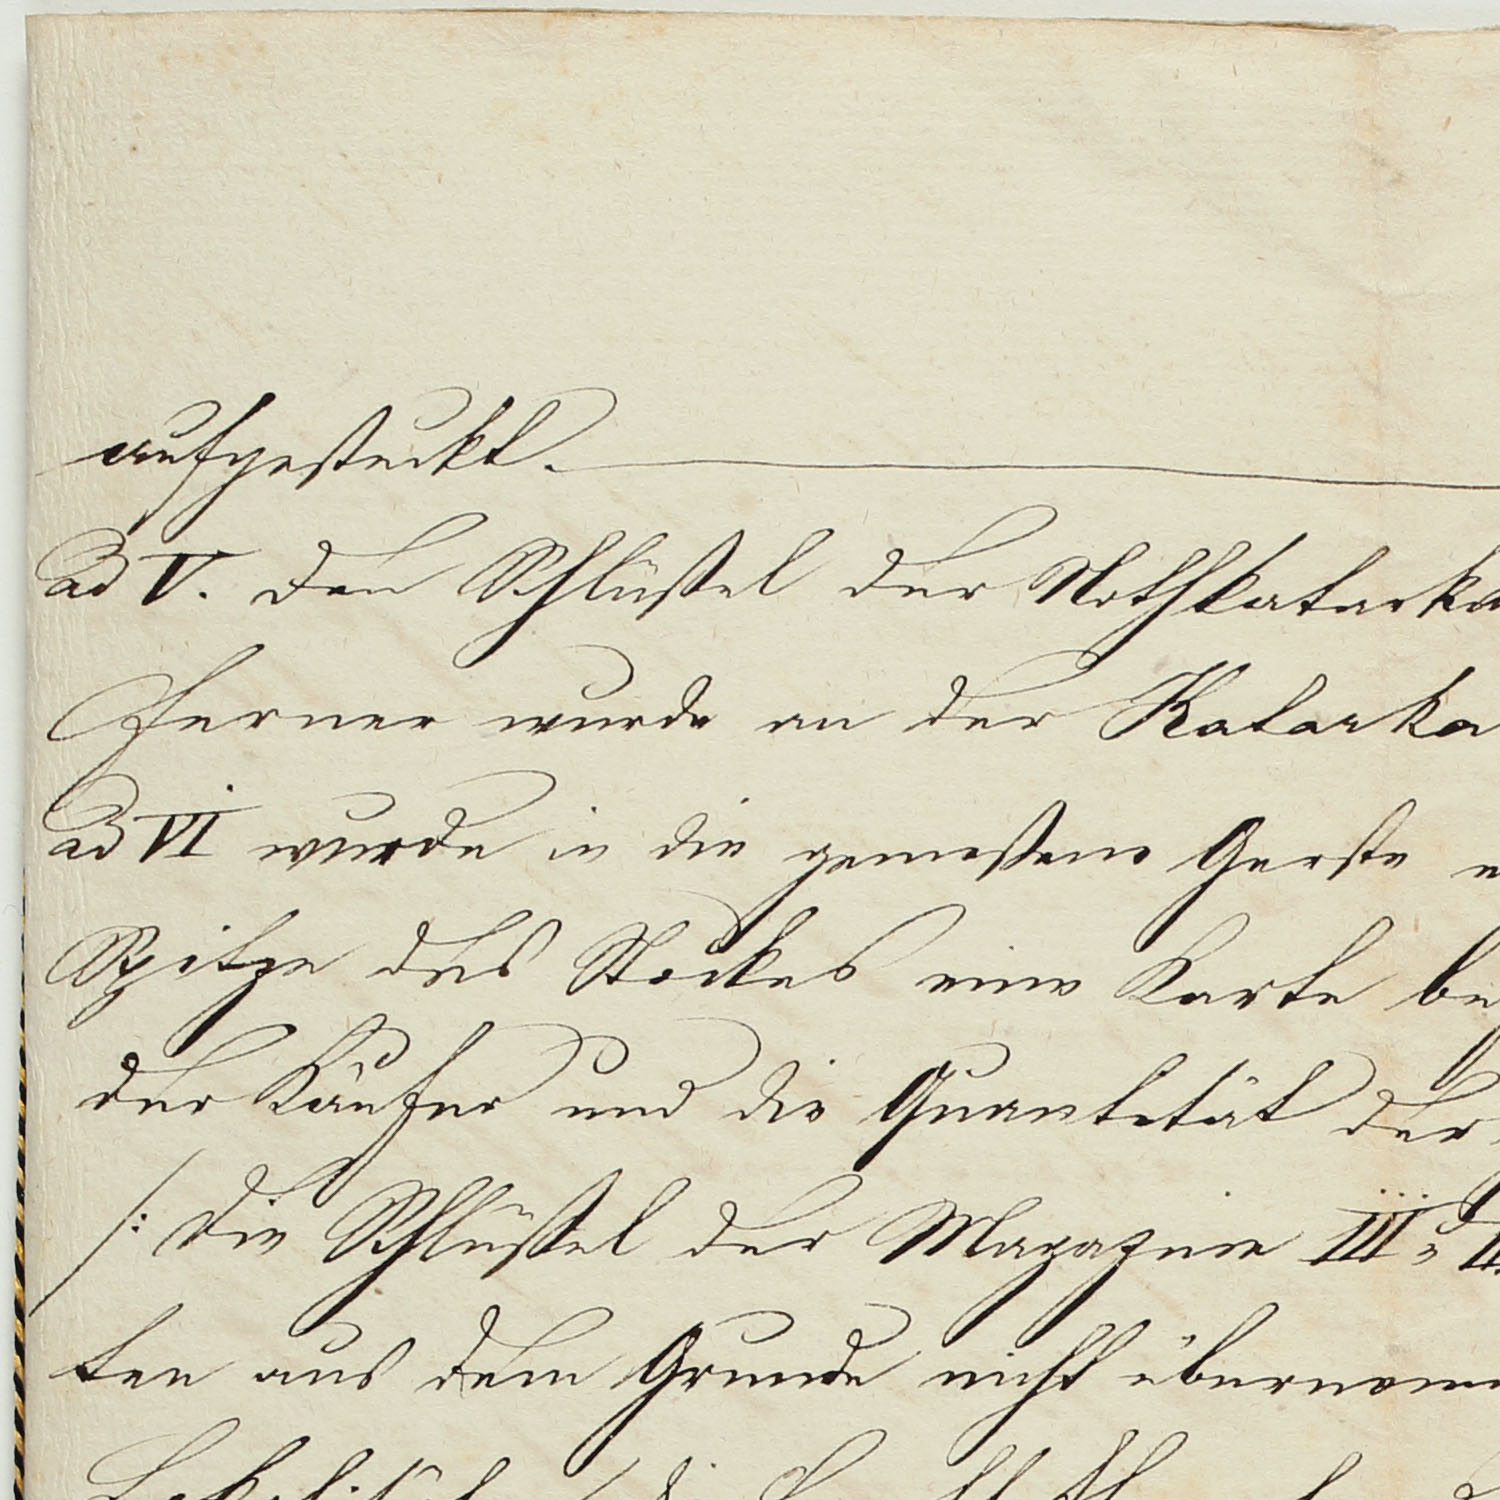 aufgesteckt.
ad V. den Schlüßel der Nothkatarka
Ferner wurde an der Katarka
ad VI wurde in die gemeßene Gerste
Spitze des Stockes eine Karte be
der Käufer und die Quantität der
/: die Schlüßel der Magazine III,
ten aus dem Grunde nicht übernom